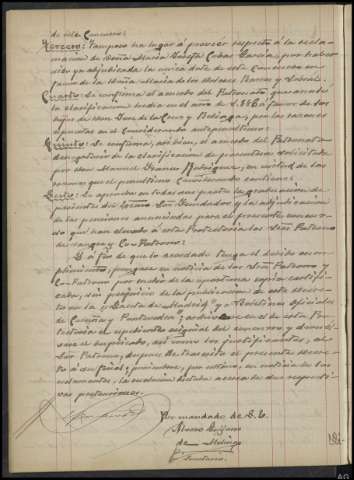 de este Concurso:
Tercero: Tampoco ha lugar á proveer respecto á la recla-
macion de Doña María Josefa Cobas García, por haber-
sido ya adjudicada la única dote de este Concurso en
favor de la Doña María de los Dolores
Cuarto: Se confirma el acuerdo del Patronato que anuló
la clasificacion hecha en el año de 1.886 á favor de los
hijos de Don José de la Cruz y por las razones
expuestas en el Considerando antepenúltimo:
Quinto: Se confirma, así bien, el acuerdo del Patronato
denegatorio de la clasificacion de parentesco solicitada
por Don Manuel Franco Rodriguez, en virtud de las
razones que el penúltimo Considerando contiene:
Sexto: Se aprueba en todas sus partes la graduacion de
parientes del Ilmo. Sr. Fundador y la adjudicacion
de las pensiones anunciadas para el presente concur-
so que han elevado á este Protectorado los Sres. Patrono
de sangre y Co-Patrono:
Y á fin de que lo acordado tenga el debido cum-
plimiento, póngase en noticia de los Sres. Patrono y
Co-Patrono por medio de la oportuna copia certifi-
cada, sin perjuicio de la publicacion de este decre-
to en la "Gaceta de Madrid" y "Boletines Oficiales
de Coruña y Pontevedra"; archívese en el de este Pro-
tectorado el expediente original del concurso y devuél-
vase el duplicado, así como los justificantes, al
Sr. Patrono, despues de trascrito el presente decre-
to á su final, poniéndose, por último, en noticia de los
reclamantes, la resolucion dictada acerca de sus respecti-
vas pretensiones.
Por mandado de S. E.
Alvaro
de
Secretario.
AG